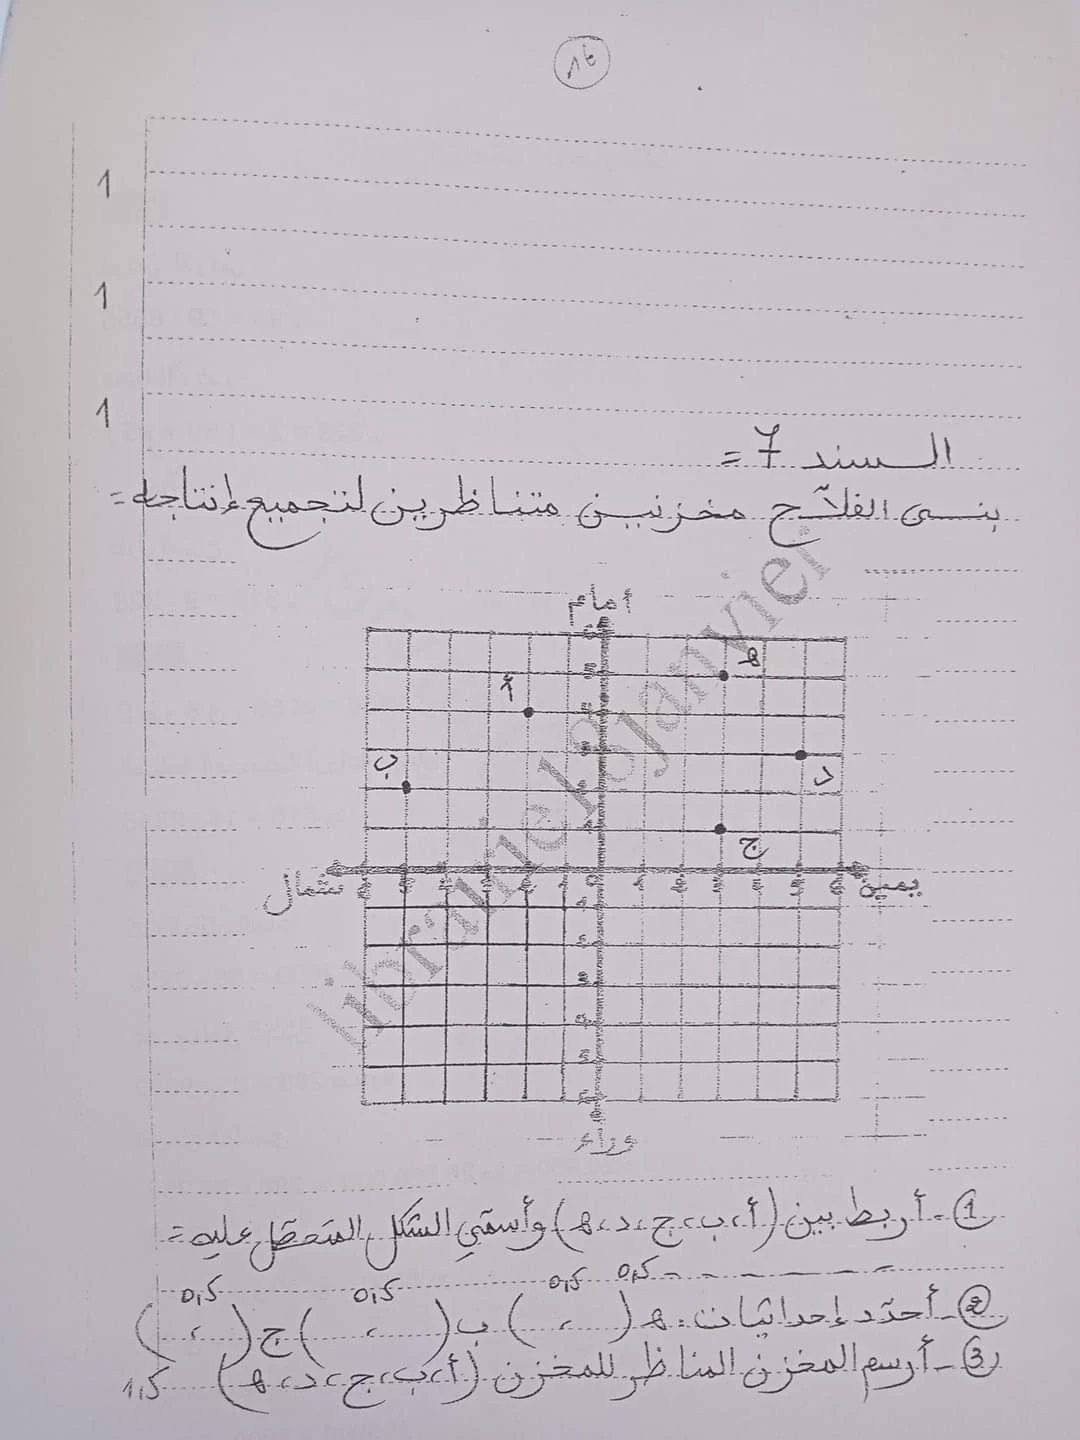 16
1
1
1
السند 7 =
بنى الفلاّح مخزنين متناظرين لتجميع إنتاجه =
أمام
هـ
أ
ب
د
ج
شمال
يمين
وراء
librairie 18 janvier
① - أربط بين (أ، ب، ج، د، هـ) وأسمّي الشكل المتحصّل عليه =
0,5 0,5 0,5 0,5
② - أحدّد إحداثيات: هـ ( ، ) ب ( ، ) ج ( ، )
③ - أرسم المخزن المناظر للمخزن (أ، ب، ج، د، هـ) 1,5